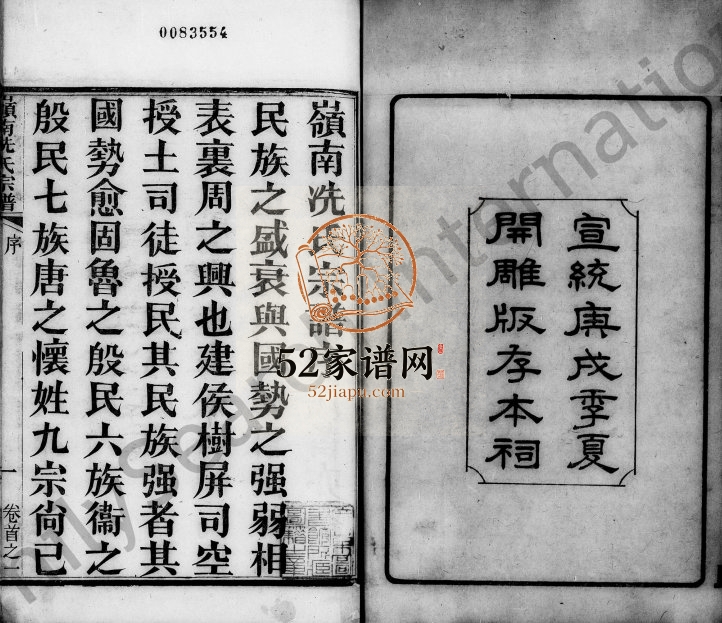 0083554
宣統庚戌季夏
開雕版存本祠
嶺南冼氏宗譜
民族之盛衰與國勢之强弱相
表裏周之興也建侯樹屏司空
授土司徒授民其民族强者其
國勢愈固魯之殷民六族衞之
殷民七族唐之懷姓九宗尙已
嶺南冼氏宗譜
序
一
卷首之一
52家谱网
52jiapu.com